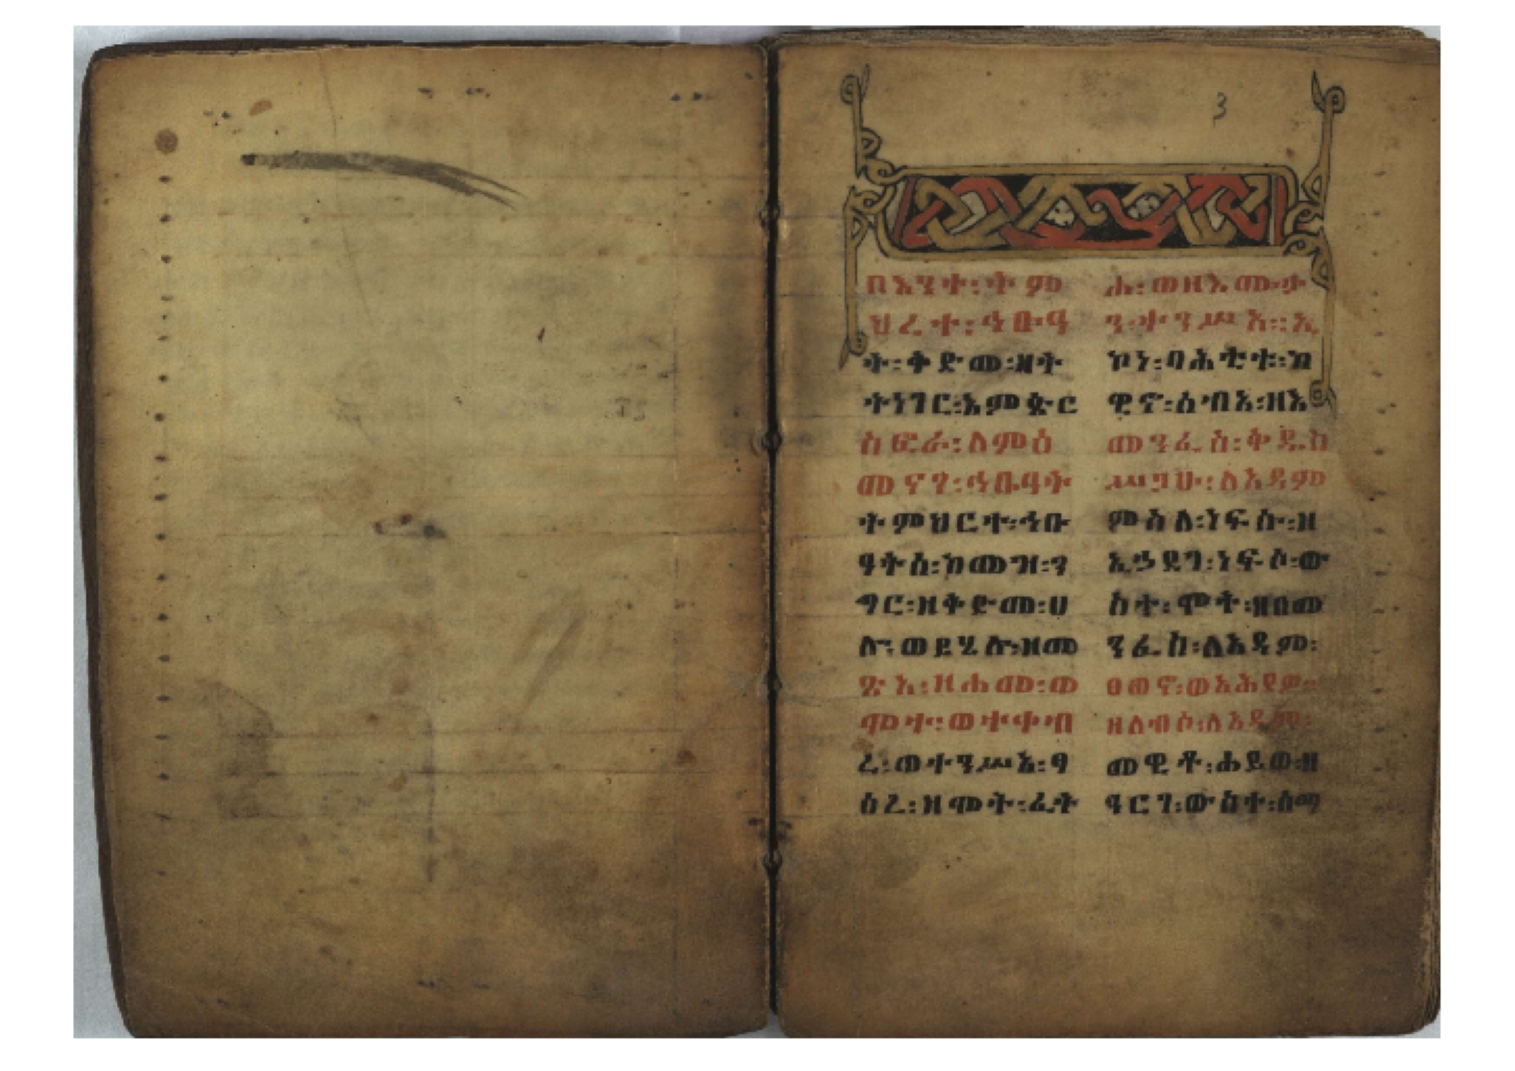 3
በእንተ፡ትም
ህረተ፡ኅቡዓ
ት፡ቅድመ፡ዘት
ትነገር፡እምቍር
ስፎራ፡ለምዕ
መናን፡ኅቡዓት
ትምህርተ፡ኅቡ
ዓትሰ፡ከመዝ፡ን
ግር፡ዘቅድመ፡ሀ
ሎ፡ወይሄሉ፡ዘመ
ጽአ፡ዘሐመ፡ወ
ሞተ፡ወተቀብ
ረ፡ወተንሥአ፡ፃ
ዕረ፡ዘሞት፡ፈት
ሐ፡ወዘእሙታ
ን፡ተንሥአ፡፡ኢ
ኮነ፡ባሕቲቱ፡ከ
ዊኖ፡ሰብአ፡ዘእ
መንፈስ፡ቅዱስ
ሥጋሁ፡ለአዳም
ምስለ፡ነፍሱ፡ዘ
ኢኃደገ፡ነፍሶ፡ው
ስተ፡ሞት፡ዘበመ
ንፈስ፡ለአዳም፡
ፀወኖ፡ወአሕየወ፡
ዘለብሶ፡ለአዳም፡
መዊቶ፡ሐይወ፡ዘ
ዓርገ፡ውስተ፡ሰማ